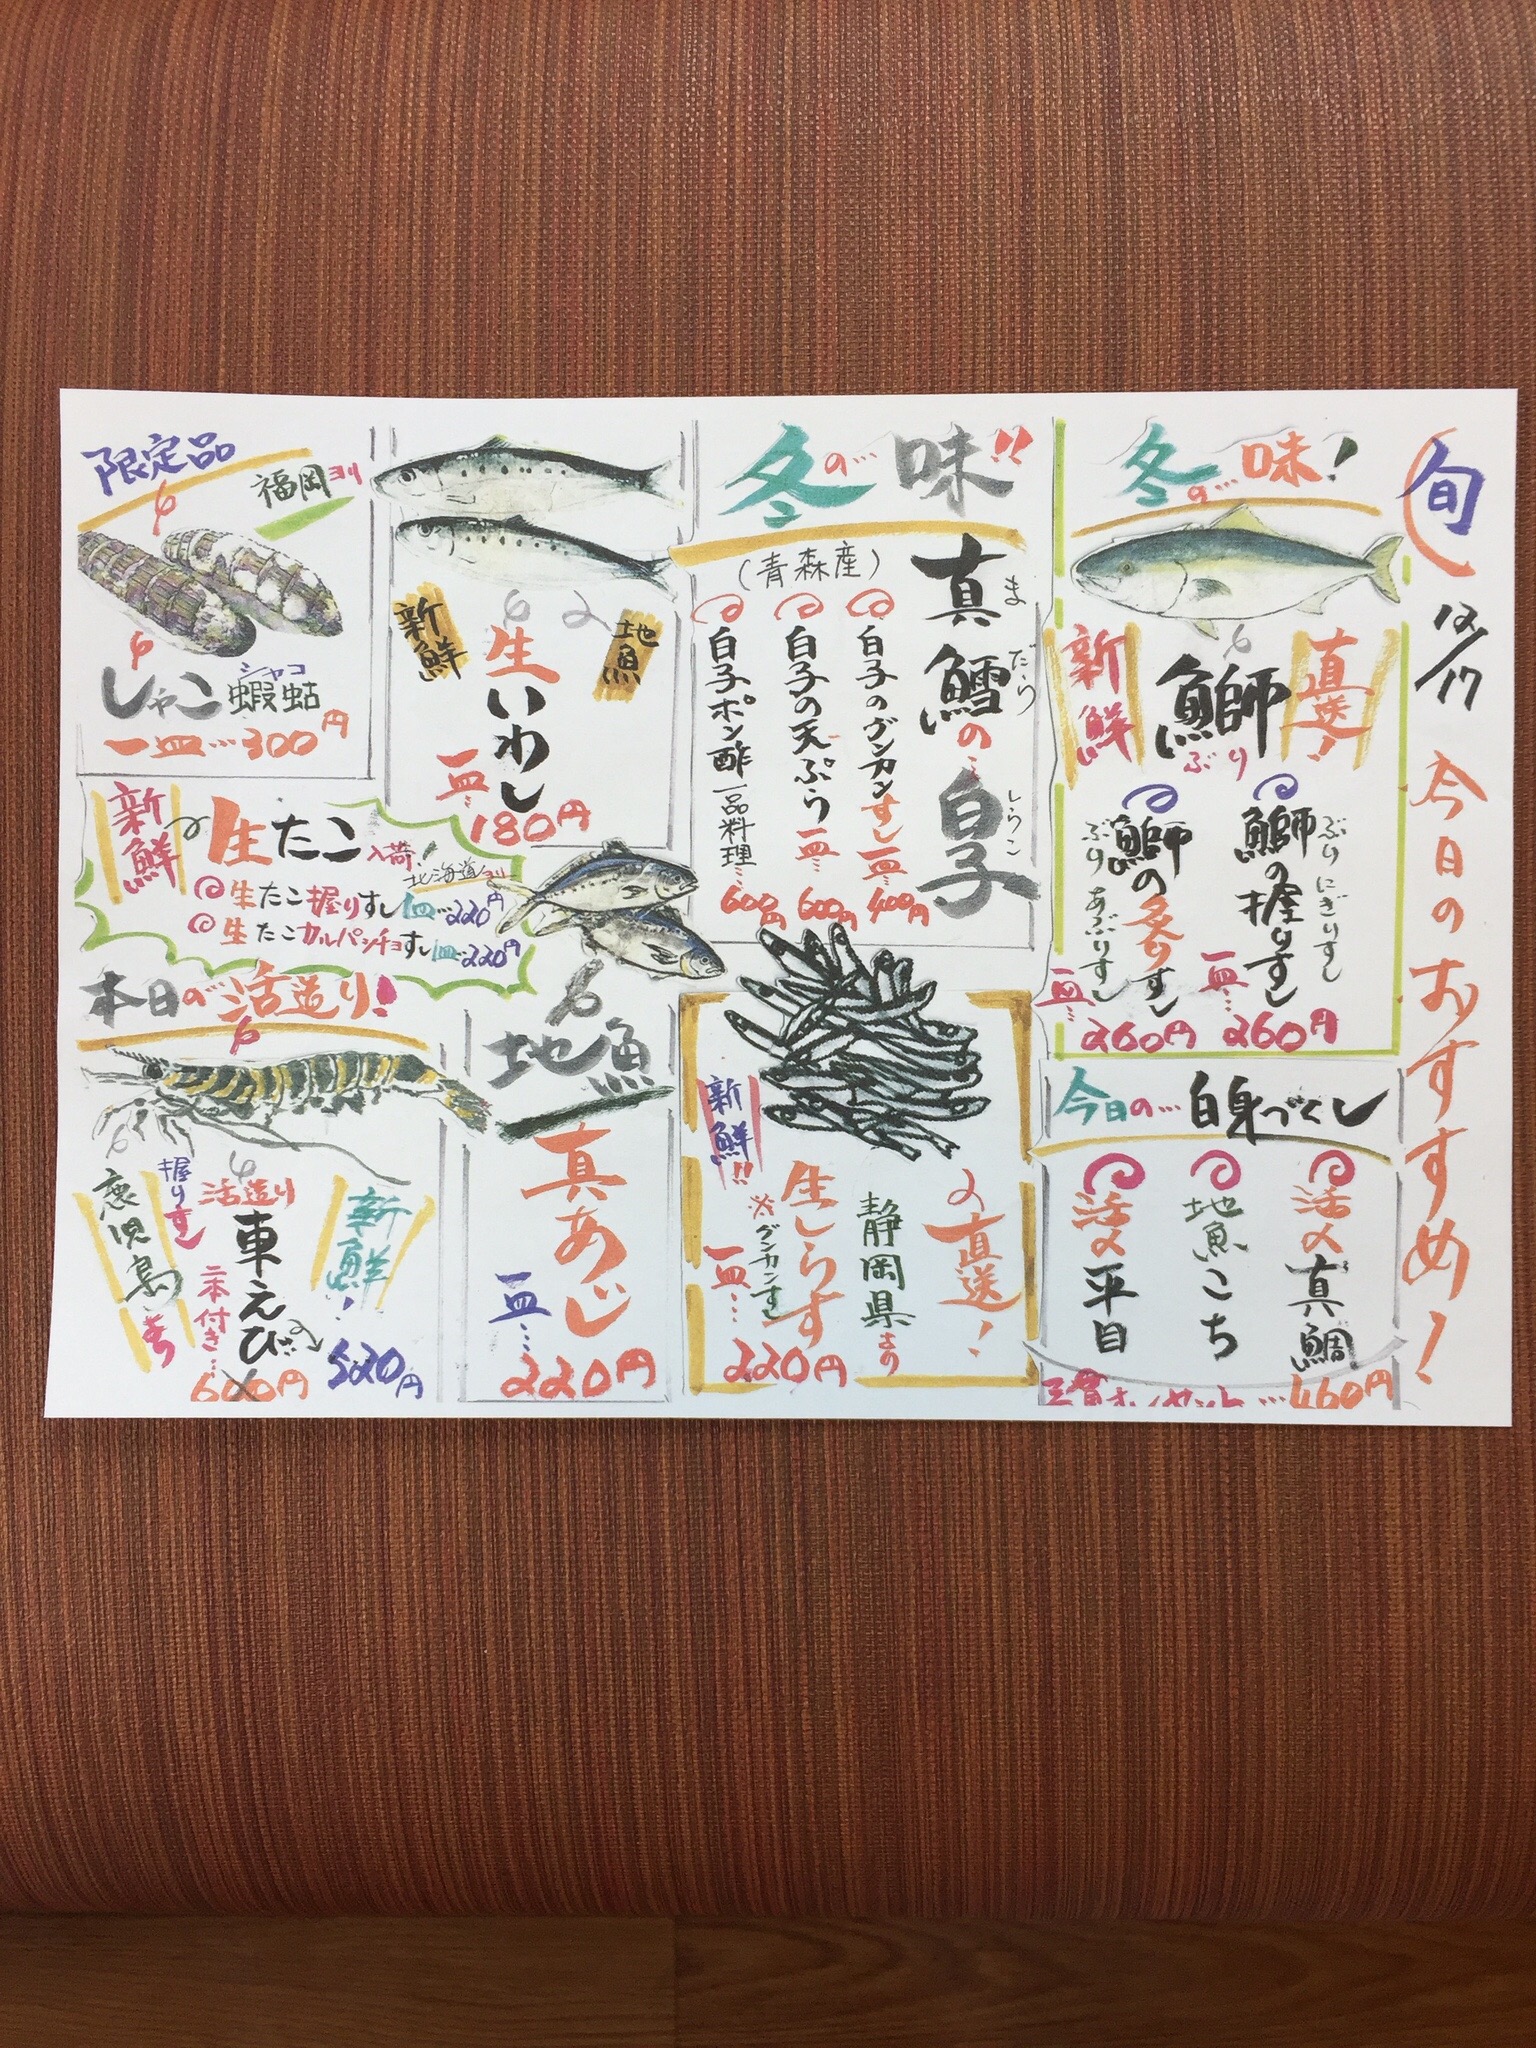 旬
12/17 今日のおすすめ!
冬の…味!
直送!
鰤
ぶり
新鮮
鰤の握りすし
ぶりにぎりすし
一皿…
260円
鰤の炙りすし
ぶりあぶりすし
一皿…
260円
今日の…白身づくし
活〆真鯛
地魚こち
活〆平目
460円
冬の…味!!
真鱈の…白子
まだら
しらこ
(青森産)
白子のグンカンすし一皿…400円
白子の天ぷら一皿…600円
白子ポン酢一品料理…600円
直送!
静岡県より
生しらす
※グンカンすし
新鮮!!
一皿…
220円
地魚
新鮮
生いわし
一皿…
180円
地魚
真あじ
一皿…
220円
限定品
福岡ヨリ
しゃこ蝦蛄
シャコ
一皿…300円
新鮮
生たこ入荷!
北海道ヨリ
生たこ握りすし一皿…220円
生たこカルパッチョすし一皿…220円
本日の…活造り!
新鮮!
活造り
車えび
握りすし
二本付き…
600円
520円
鹿児島